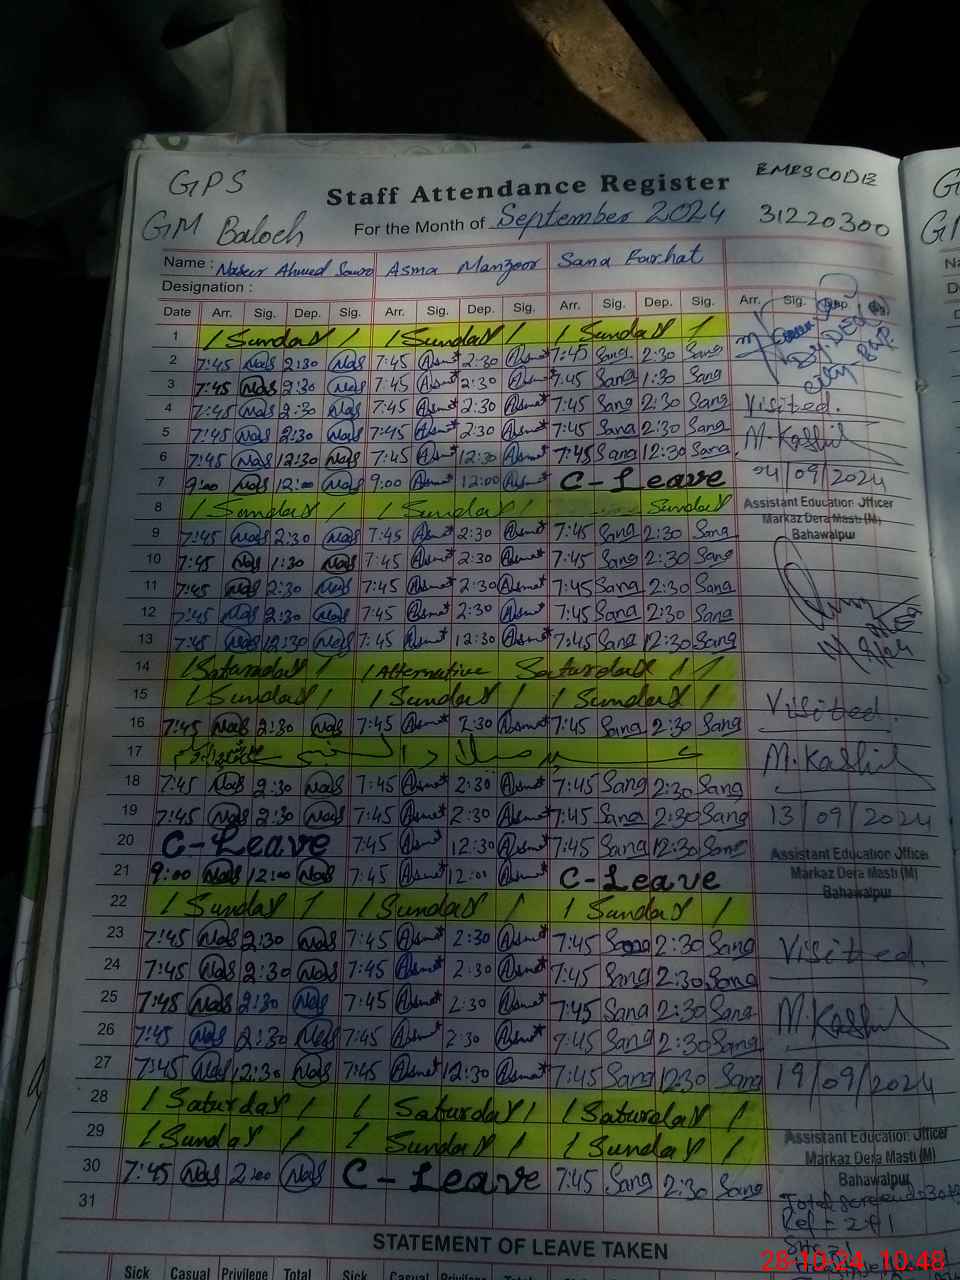 GPS
Staff Attendance Register
EMESCODE
GM Baloch
For the Month of September 2024
31220300
Name : Naseer Ahmed Asma Manzoor Sana Farhat
Designation :
Date Arr. Sig. Dep. Sig. Arr. Sig. Dep. Sig. Arr. Sig. Dep. Sig. Arr. Sig. Dep.
1 / Sunday / / Sunday / / Sunday /
2 7:45 Nas 2:30 Nas 7:45 Asma 2:30 Asma 7:45 Sana 2:30 Sana
3 7:45 Nas 2:30 Nas 7:45 Asma 2:30 Asma 7:45 Sana 1:30 Sana
4 7:45 Nas 2:30 Nas 7:45 Asma 2:30 Asma 7:45 Sana 2:30 Sana Visited.
5 7:45 Nas 2:30 Nas 7:45 Asma 2:30 Asma 7:45 Sana 2:30 Sana M. Kashif
6 7:45 Nas 12:30 Nas 7:45 Asma 12:30 Asma 7:45 Sana 12:30 Sana
7 9:00 Nas 12:00 Nas 9:00 Asma 12:00 Asma C-Leave 04/09/2024
8 / Sunday / / Sunday / Sunday Assistant Education Officer
Markaz Dera Masti (M)
9 7:45 Nas 2:30 Nas 7:45 Asma 2:30 Asma 7:45 Sana 2:30 Sana Bahawalpur
10 7:45 Nas 1:30 Nas 7:45 Asma 2:30 Asma 7:45 Sana 2:30 Sana
11 7:45 Nas 2:30 Nas 7:45 Asma 2:30 Asma 7:45 Sana 2:30 Sana
12 7:45 Nas 2:30 Nas 7:45 Asma 2:30 Asma 7:45 Sana 2:30 Sana
13 7:45 Nas 12:30 Nas 7:45 Asma 12:30 Asma 7:45 Sana 12:30 Sana
14 / Saturday / / Alternative Saturday / /
15 / Sunday / / Sunday / / Sunday / Visited.
16 7:45 Nas 2:30 Nas 7:45 Asma 2:30 Asma 7:45 Sana 2:30 Sana
17 M. Kashif
18 7:45 Nas 2:30 Nas 7:45 Asma 2:30 Asma 7:45 Sana 2:30 Sana
19 7:45 Nas 2:30 Nas 7:45 Asma 2:30 Asma 7:45 Sana 2:30 Sana 13/09/2024
20 C-Leave 7:45 Asma 12:30 Asma 7:45 Sana 12:30 Sana Assistant Education Officer
21 9:00 Nas 12:00 Nas 7:45 Asma 12:00 Asma C-Leave Markaz Dera Masti (M)
Bahawalpur
22 / Sunday / / Sunday / / Sunday /
23 7:45 Nas 2:30 Nas 7:45 Asma 2:30 Asma 7:45 Sana 2:30 Sana Visited.
24 7:45 Nas 2:30 Nas 7:45 Asma 2:30 Asma 7:45 Sana 2:30 Sana
25 7:45 Nas 2:30 Nas 7:45 Asma 2:30 Asma 7:45 Sana 2:30 Sana M. Kashif
26 7:45 Nas 2:30 Nas 7:45 Asma 2:30 Asma 7:45 Sana 2:30 Sana
27 7:45 Nas 12:30 Nas 7:45 Asma 12:30 Asma 7:45 Sana 12:30 Sana 19/09/2024
28 / Saturday / / Saturday / / Saturday /
29 / Sunday / / Sunday / / Sunday / Assistant Education Officer
Markaz Dera Masti (M)
30 7:45 Nas 2:00 Nas C-Leave 7:45 Sana 2:30 Sana Bahawalpur
31
STATEMENT OF LEAVE TAKEN
Sick Casual Privilege Total Sick Casual Privilege Total Sick Casual Privilege Total
28-10-24 10:48